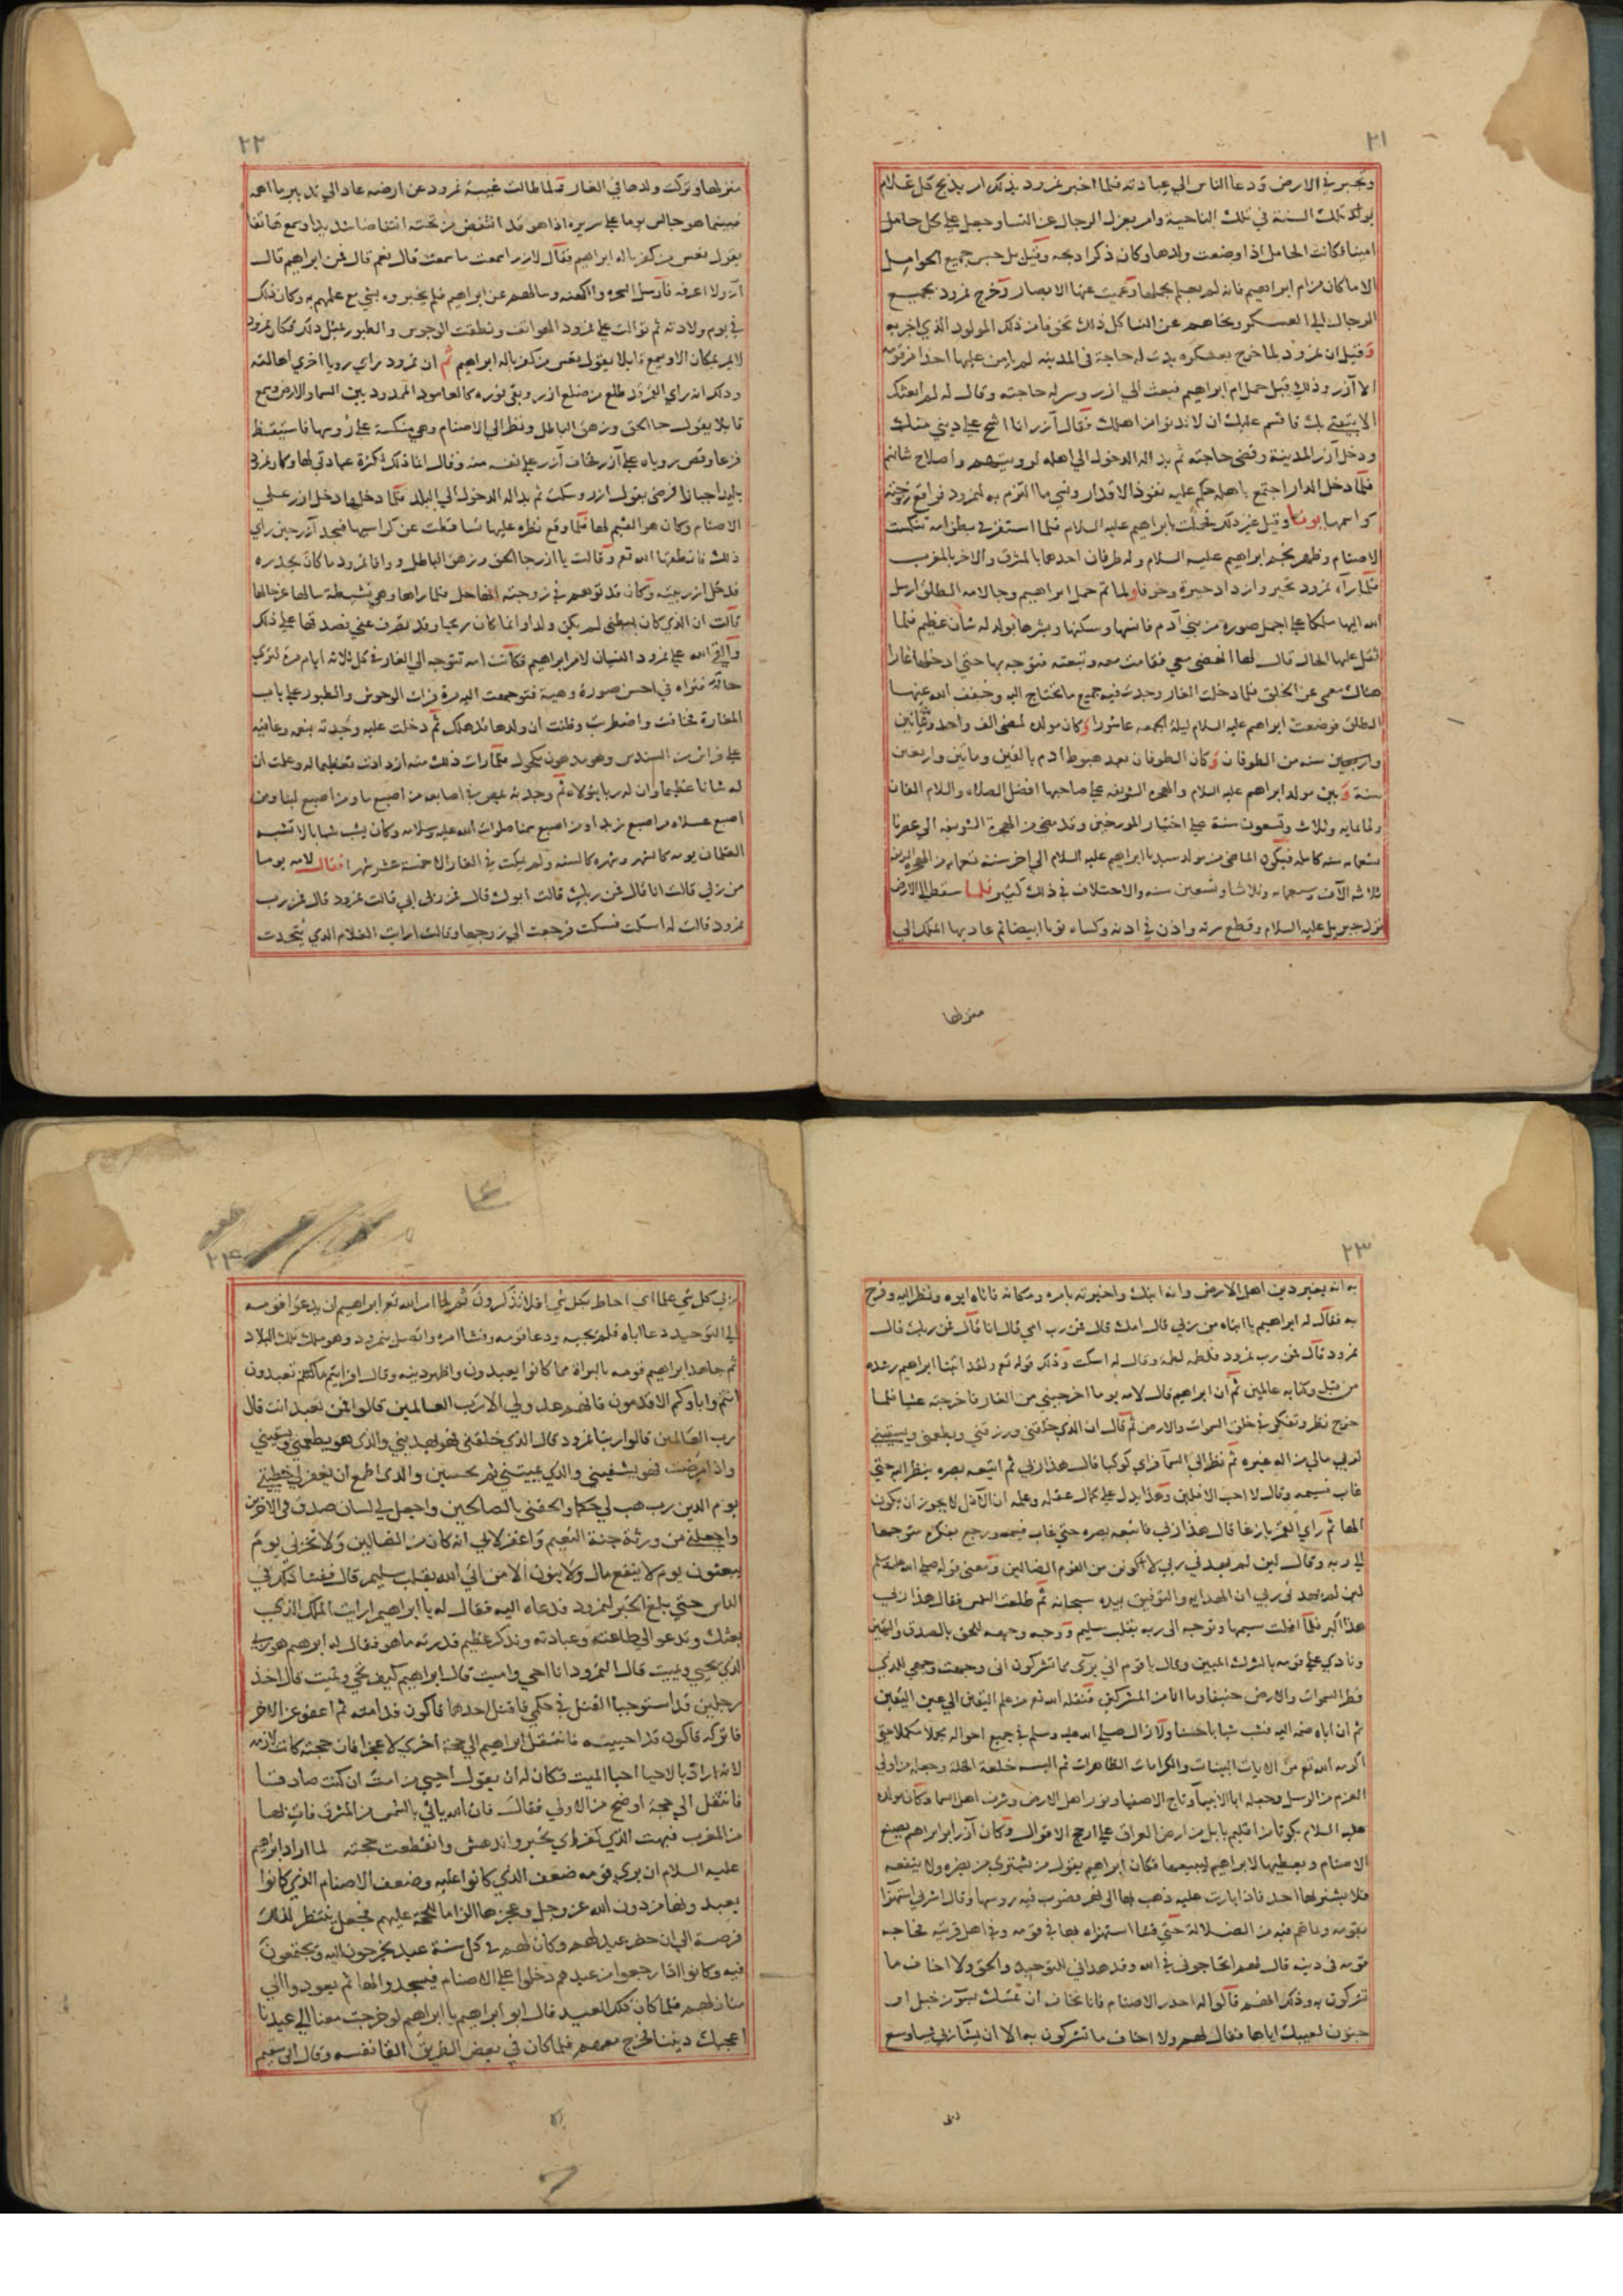 ٢١
وتجبر في الارض ودعا الناس الي عبادته فلما اخبر نمرود بذلك امر بذبح كل غلام
يولد تلك السنة في تلك الناحية وامر بعزل الرجال عن النسا وجعل علي كل حامل
امينا فكانت الحامل اذا وضعت ولدها وكان ذكرا ذبحه وقيل بل حبس جميع الحوامل
الا ما كان من ام ابراهيم فانه لم يعلم بحملها وعميت عنها الابصار وخرج نمرود بجميع
الرجال الي العسكر ونحاهم عن النسا كل ذلك تخوفا من ذلك المولود الذي اخبر به
وقيل ان نمرود لما خرج بعسكره بدت له حاجة في المدينة لم يامن عليها احدا من قومه
الا آزر وذلك قبل حمل ام ابراهيم فبعث الي ازر وسر له حاجته وقال له لم ابعثك
الا لثقتي بك فاقسم عليك ان لا تدنو من اهلك فقال آزر انا اشح علي ديني من ذلك
ودخل آزر المدينة وقضي حاجته ثم بدا له الدخول الي اهله لرويتهم واصلاح شانهم
فلما دخل الدار اجتمع باهله حكم عليه نفوذ الاقدار ونسي ما التزم به لنمرود فواقع زوجته
واسمها يونا وقيل غير ذلك فحملت بابراهيم عليه السلام فلما استقر في بطن امه تنكست
الاصنام وظهر نجم ابراهيم عليه السلام وله طرفان احدهما بالمشرق والاخر بالمغرب
فلما رآه نمرود تحير وازداد حيرة وخوفا ولما تم حمل ابراهيم وجا لامه الطلق ارسل
الله اليها ملكا علي اجمل صورة من بني آدم فانسها وسكنها وبشرها بولد له شان عظيم فلما
ثقل عليها الحال قال لها انهضي معي فقامت معه وتبعته فتوجه بها حتي ادخلها غارا
هناك معمي عن الخلق فلما دخلت الغار وجدت فيه جميع ما تحتاج اليه وخفف الله عنها
الطلق فوضعت ابراهيم عليه السلام ليلة الجمعه عاشورا وكان مولده لمضي الف واحد وثمانين
واربعين سنه من الطوفان وكان الطوفان بعد هبوط ادم بالفين ومائتين واربعين
سنة وبين مولد ابراهيم عليه السلام والهجره الشريفه علي صاحبها افضل الصلاه والسلام الفان
وثمانمايه وثلاث وتسعون سنة علي اختيار المورخين وقد مضي من الهجرة الشريفه الي عصرنا
تسعمايه سنه كامله فيكون الماضي من مولد سيدنا ابراهيم عليه السلام الي اخر سنة تسعمايه من الهجره
ثلاثه الآف وسبعمايه وثلاثا وتسعين سنه والاختلاف في ذلك كثير فلما سقط الي الارض
نزل جبريل عليه السلام وقطع سرته واذن في اذنه وكساه ثوبا ابيضا ثم عاد بها الملك الي
منزلها
٢٢
منزلها وتركت ولدها في الغار فلما طالت غيبة نمرود عن ارضه عاد الي تدبير ما اهمه
فبينما هو جالس يوما علي سريره اذا هو قد انتفض من تحته انتفاضا شديدا وسمع هاتفا
يقول تعس من كفر باله ابراهيم فقال لازر اسمعت ما سمعت قال نعم قال فمن ابراهيم قال
آزر لا اعرفه فارسل السحره والكهنه وسالهم عن ابراهيم فلم يخبروه بشي مع علمهم به وكان ذلك
في يوم ولادته ثم توالت علي نمرود الهواتف ونطقت الوحوش والطيور بمثل ذلك فكان نمرود
لا يمر بمكان الا ويسمع قايلا يقول تعس من كفر باله ابراهيم ثم ان نمرود راي رويا اخري اهالته
وذلك انه راي القمر قد طلع من ضلع ازر وبقي نوره كالعامود الممدود بين السما والارض وسمع
قايلا يقول جا الحق وزهق الباطل ونظر الي الاصنام وهي منكسة علي رؤسها فاستيقظ
فزعا وقص روياه علي آزر فخاف آزر علي نفسه منه وقال انما ذلك لكثرة عبادتي لها وكان نمرود
بليدا جبانا فرضي بقول ازر وسكت ثم بدا له الدخول الي البلد فلما دخلها دخل ازر علي
الاصنام وكان هو القيم لها فلما وقع نظره عليها تساقطت عن كراسيها فسجد آزر حين راي
ذلك فانطقها الله تعم وقالت يا ازر جا الحق وزهق الباطل ووافا نمرود ما كان يحذره
فدخل ازر بيته وكان قد توهم في زوجته انها حامل فلما راها وهي نشيطة سالها عن حالها
قالت ان الذي كان ببطني لم يكن ولدا وانما كان ريحا وقد تفرق عني فصدقها علي ذلك
والقي الله علي نمرود النسيان لامر ابراهيم فكانت امه تتوجه الي الغار في كل ثلاثه ايام مرة لتري
حاله فتراه في احسن صورة وهيبة فتوجهت اليه مرة فرات الوحوش والطيور علي باب
المغارة فخافت واضطربت وظنت ان ولدها قد هلك ثم دخلت عليه وجدته بنعمه وعافيه
علي فراش من السندس وهو مدهون مكحول فلما رات ذلك منه ازدادت تعظيما له وعلمت ان
له شانا عظيما وان له ربا يتولاه ثم وجدته يمص من اصابعه من اصبع ما ومن اصبع لبنا ومن
اصبع عسلا ومن اصبع زبدا ومن اصبع سمنا صلوات الله عليه وسلامه وكان يشب شبابا لا تشبه
الغلمان يومه كالشهر وشهره كالسنه ولم يمكث في الغار الا خمسة عشر شهرا فقال لامه يوما
من ربي قالت انا قال فمن ربك قالت ابوك قال فمن رب ابي قالت نمرود قال فمن رب
نمرود قالت له اسكت فسكت فرجعت الي زوجها وقالت ارايت الغلام الذي نتحدث
٢٣
به انه يغير دين اهل الارض وانه ابنك واخبرته بامره ومكانه فاتاه ابوه ونظر اليه وفرح
به فقال له ابراهيم يا ابتاه من ربي قال امك قال فمن رب امي قال انا قال فمن ربك قال
نمرود قال فمن رب نمرود فلطمه لطمة وقال له اسكت وذلك قوله تعم ولقد اتينا ابراهيم رشده
من قبل وكنا به عالمين ثم ان ابراهيم قال لامه يوما اخرجيني من الغار فاخرجته عشيا فلما
خرج نظر وتفكر في خلق السموات والارض ثم قال ان الذي خلقني ورزقني ويطعمني ويسقيني
لربي مالي من اله غيره ثم نظر الي السما فراي كوكبا قال هذا ربي ثم اتبعه بصره ينظر اليه حتي
غاب فيسمه وقال لا احب الافلين وهذا يدل علي كمال عقله وعلمه ان الآفل لا يجوز ان يكون
الها ثم راي القمر بازغا قال هذا ربي فاتبعه بصره حتي غاب فيسمه ورجع بفكره متوجها
الي ربه وقال لين لم يهدني ربي لاكونن من القوم الضالين ومعني قوله صلي الله عليه وسلم
لين لم يهدني ربي ان الهدايه والتوفيق بيده سبحانه ثم طلعت الشمس فقال هذا ربي
هذا اكبر فلما افلت سيمها وتوجه الي ربه بقلب سليم ووجه وجهه للحق بالصدق واليقين
ونادي علي قومه بالشرك المبين وقال يا قوم اني بري مما تشركون اني وجهت وجهي للذي
فطر السموات والارض حنيفا وما انا من المشركين فنقله الله تعم من علم اليقين الي عين اليقين
ثم ان اباه ضمه اليه فشب شبابا حسنا ولا زال صلي الله عليه وسلم في جميع احواله مجملا مكملا حتي
اكرمه الله تعم من الايات البينات والكرامات الظاهرات ثم البسه خلعة الخلة وجعله من اولي
العزم من الرسل وجعله ابا الانبيا وتاج الاصفيا ونور اهل الارض وشرف اهل السما وكان مولده
عليه السلام بكوثا من اقليم بابل من ارض العراق علي ارجح الاقوال وكان آزر ابو ابراهيم يصنع
الاصنام ويعطيها لابراهيم ليبيعها فكان ابراهيم يقول من يشتري من يضره ولا ينفعه
فلا يشتريها احد فاذا بارت عليه ذهب بها الي نهر فصوب فيه روسها وقال اشربي استهزا
بقومه وما هم فيه من الضلالة حتي فشا استهزاه بها في قومه وفي اهل قريته فحاجه
قومه في دينه قال لهم اتحاجوني في الله وقد هداني للتوحيد والحق ولا اخاف ما
تشركون به وذلك انهم قالوا له احذر الاصنام فانا نخاف ان تمسك بسو من خبل او
جنون لعيبك اياها فقال لهم ولا اخاف ما تشركون به الا ان يشا ربي شيا وسع
ربي
٢٤
ربي كل شي علما اي احاط بكل شي افلا تذكرون ثم لما امر الله تعم ابراهيم ان يدعو قومه
الي التوحيد دعا اباه فلم يجبه ودعا قومه وفشا امره واتصل بنمرود وهو ملك تلك البلاد
ثم جاهد ابراهيم قومه بالبراة مما كانوا يعبدون واظهر دينه وقال افرايتم ما كنتم تعبدون
انتم واباوكم الاقدمون فانهم عدو لي الا رب العالمين قالوا فمن تعبد انت قال
رب العالمين قالوا ربنا نمرود قال الذي خلقني فهو يهديني والذي هو يطعمني ويسقيني
واذا مرضت فهو يشفيني والذي يميتني ثم يحيين والذي اطمع ان يغفر لي خطيتي
يوم الدين رب هب لي حكما والحقني بالصالحين واجعل لي لسان صدق في الاخرين
واجعلني من ورثة جنة النعيم واغفر لابي انه كان من الضالين ولا تخزني يوم
يبعثون يوم لا ينفع مال ولا بنون الا من اتي الله بقلب سليم قال ففشا ذلك في
الناس حتي بلغ الخبر لنمرود فدعاه اليه فقال له يا ابراهيم ارايت الملك الذي
بعثك وتدعو الي طاعته وعبادته وتذكر عظيم قدرته ما هو فقال له ابرهيم هو ربي
الذي يحيي ويميت قال النمرود انا احي واميت قال ابراهيم كيف تحي وتميت قال اخذ
رجلين قد استوجبا القتل في حكمي فاقتل احدهما فاكون قد امته ثم اعفو عن الاخر
فاتركه فاكون قد احييته فانتقل ابراهيم الي حجة اخري لا عجزا فان حجته كانت لازمه
لانه اراد بالاحيا احيا الميت فكان له ان يقول احيي من امت ان كنت صادقا
فانتقل الي حجة اوضح من الاولي فقال فان الله ياتي بالشمس من المشرق فات بها
من المغرب فبهت الذي كفر اي تحير واندهش وانقطعت حجته لما اراد ابراهيم
عليه السلام ان يري قومه ضعف الذي كانوا عليه وضعف الاصنام الذي كانوا
يعبدونها من دون الله عز وجل وعجزها الزاما للحجة عليهم فجعل ينتظر لذلك
فرصة الي ان حضر عيد لهم وكان لهم في كل سنة عيد يخرجون اليه ويجتمعون
فيه وكانوا اذا رجعوا من عيدهم دخلوا علي الاصنام فيسجدوا لها ثم يعودوا الي
منازلهم فلما كان ذلك العيد قال ابو ابراهيم يا ابراهيم لو خرجت معنا الي عيدنا
اعجبك ديننا فخرج معهم فلما كان في بعض الطريق القا نفسه وقال اني سقيم